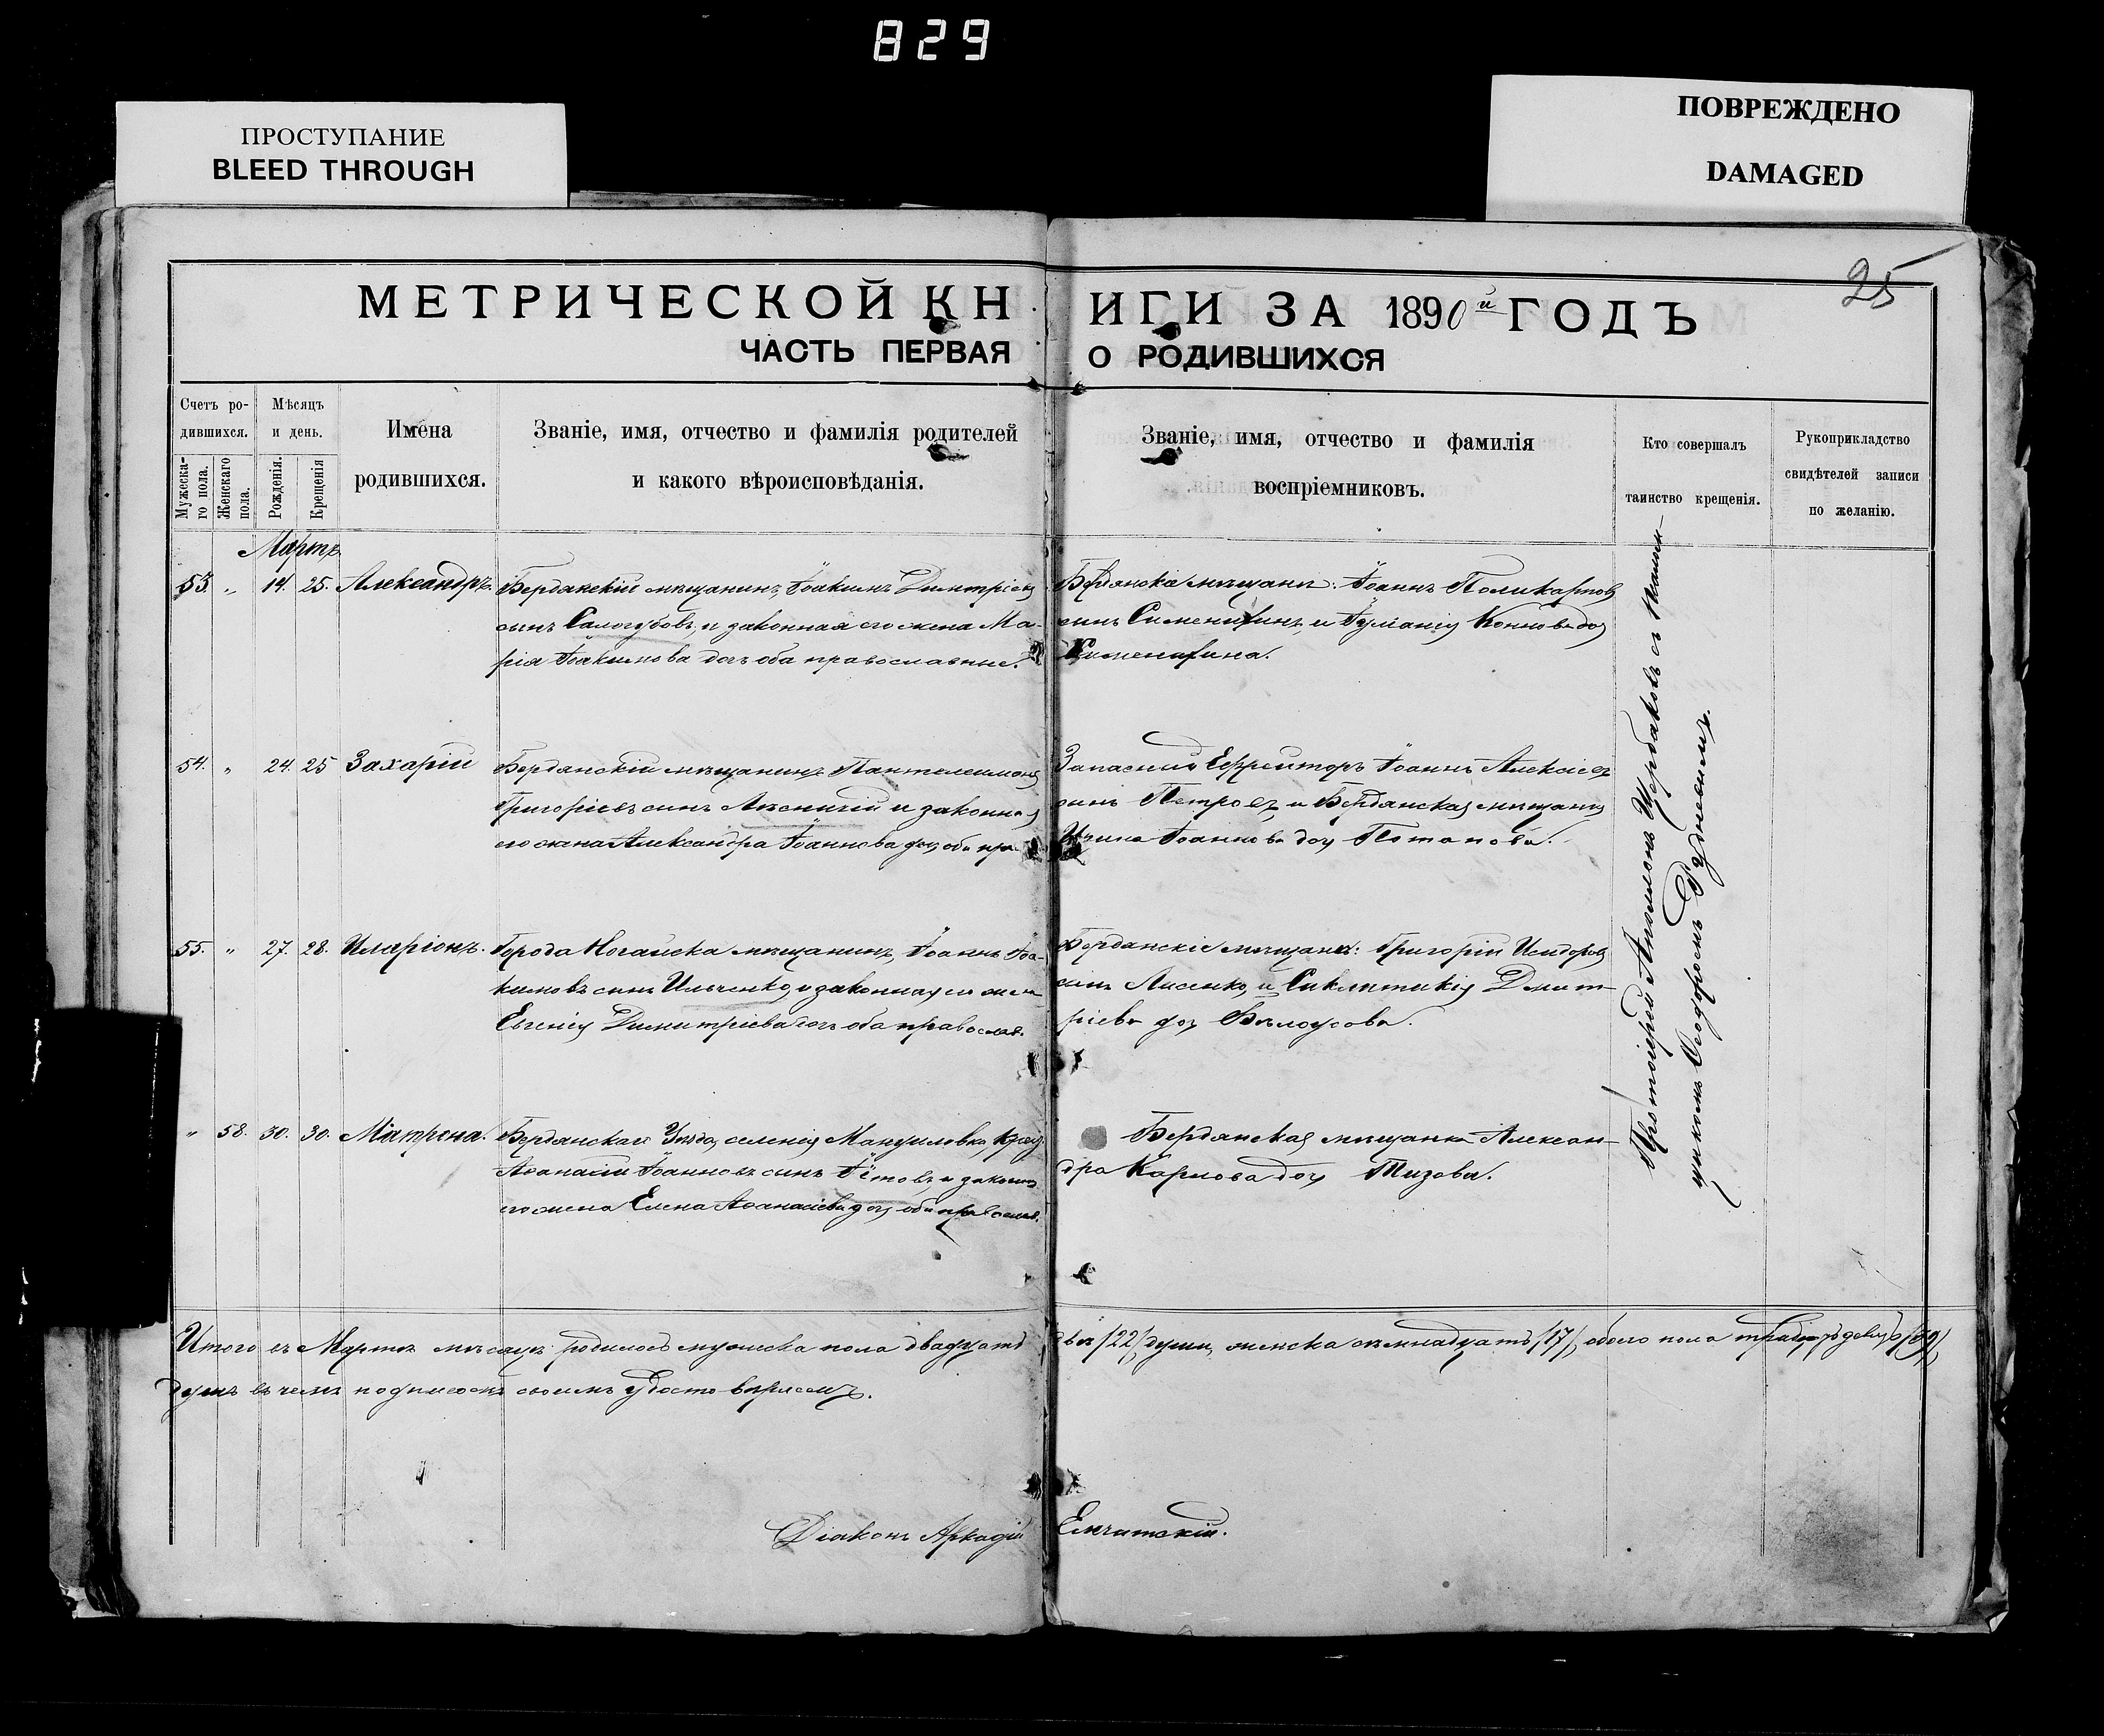 829
ПРОСТУПАНИЕ
BLEED THROUGH
ПОВРЕЖДЕНО
DAMAGED
25
МЕТРИЧЕСКОЙ КНИГИ ЗА 1890й ГОДЪ
ЧАСТЬ ПЕРВАЯ О РОДИВШИХСЯ
Счетъ ро-
дившихся.
Мужеска-
го пола.
Женскаго
пола.
Мѣсяцъ
и день.
Рожденія.
Крещенія
Имена
родившихся.
Званіе, имя, отчество и фамилія родителей
и какого вѣроисповѣданія.
Званіе, имя, отчество и фамилія
воспріемниковъ.
Кто совершалъ
таинство крещенія.
Рукоприкладство
свидѣтелей записи
по желанію.
Мартъ
53. „ 14. 25. Александръ.
Бердянскій мѣщанинъ, Іоакимъ Димитріевъ
сынъ Салогубовъ, и законная его жена Ма-
рія Іоакимова дочь оба православные.
Бердянскіе мѣщане: Іоаннъ Поликарповъ
сынъ и
54. „ 24. 25 Захарій
Бердянскій мѣщанинъ Пантелеимонъ
Григоріевъ сынъ Лѣсничій и законная
его жена Александра Іоаннова дочь оба пра
Запасный Ефрейторъ Іоаннъ Алексіевъ
сынъ Петровъ, и Бердянская мѣщанка
Ирина Іоаннова дочь Потапова.
55. „ 27. 28. Иларіонъ.
Города Ногайска мѣщанинъ, Іоаннъ Іоа-
кимовъ сынъ Ильченко, и законная его жена
Евгенія Димитріева дочь оба православ.
Бердянскіе мѣщане: Григорій Исидоровъ
сынъ Лисенко, и Сиклитикія Димит-
ріева дочь Бѣлоусова.
„ 58. 30. 30. Матрона.
Бердянскаго Уѣзда, селенія Мануиловки, крест.
Аѳанасій Іоанновъ сынъ и законная
его жена Елена Аѳанасіева дочь оба православ.
Бердянская мѣщанка Алексан-
дра Карпова дочь Тизова.
Протоіерей Аполлонъ Щербаковъ съ
Ѳеодоромъ Рудневымъ.
Итого въ Мартѣ мѣсяцѣ родилось мужеска пола двадцать два /22/ души, женска семнадцать /17/, обоего пола тридцать девять /39/,
душъ въ чемъ подписомъ своимъ удостовѣряемъ.
Діаконъ Аркадій